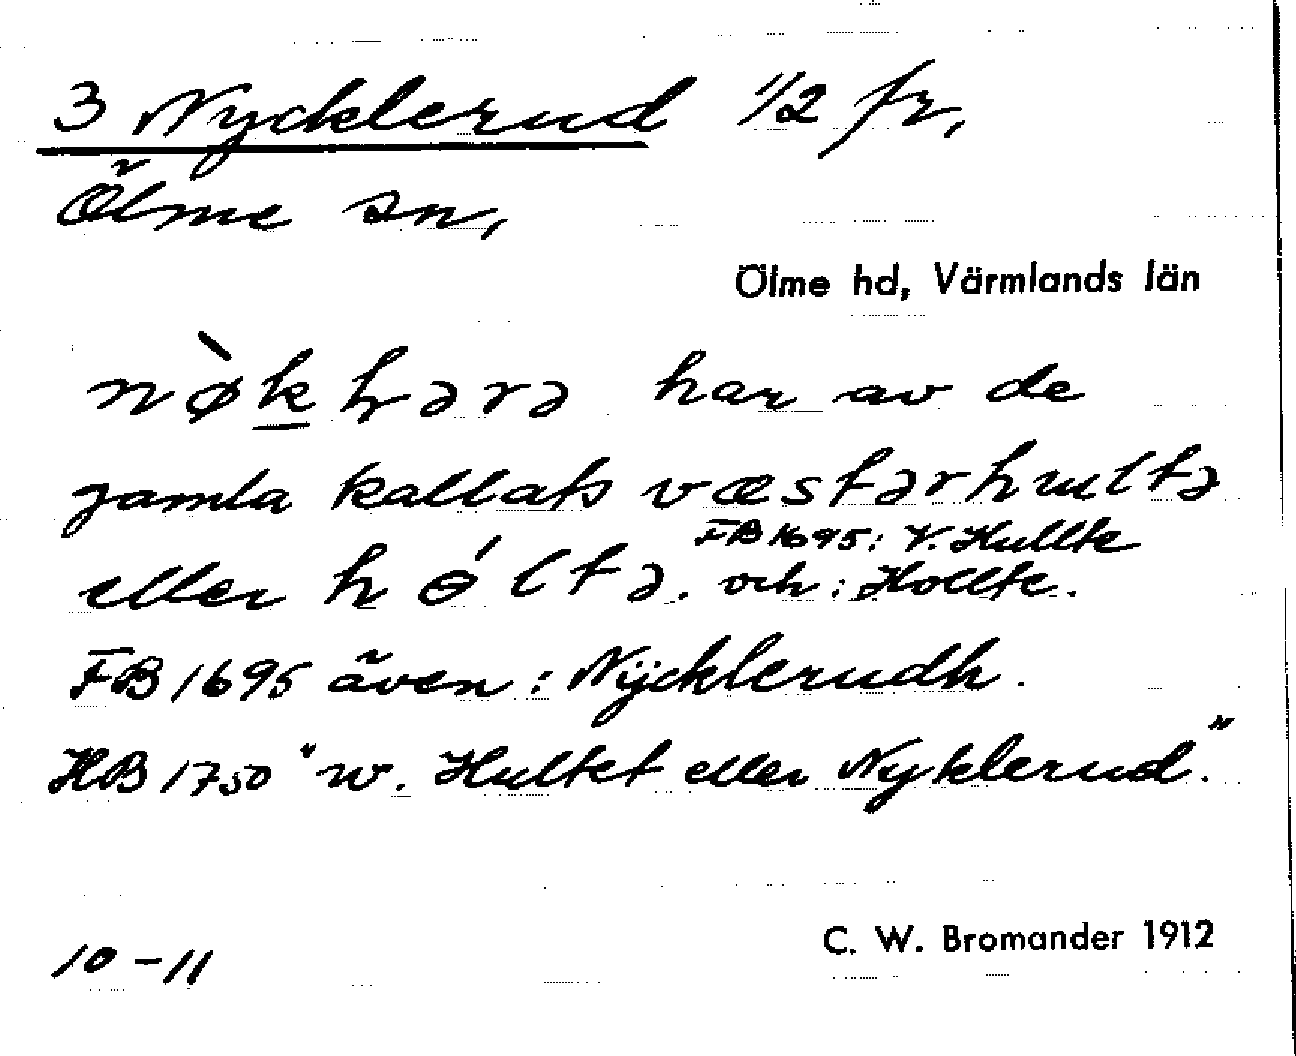 3 Nycklerud 1/2 fr,
Ölme sn,
Ölme hd, Värmlands län
nø̀khərə har av de
gamla kallats væstərhultə
FB 1695: V. Hullte
eller hɵ́ltə. och: Hollte.
FB 1695 även: Nÿcklerudh.
HB 1750 "w. Hultet eller Nyklerud."
10-11
C. W. Bromander 1912